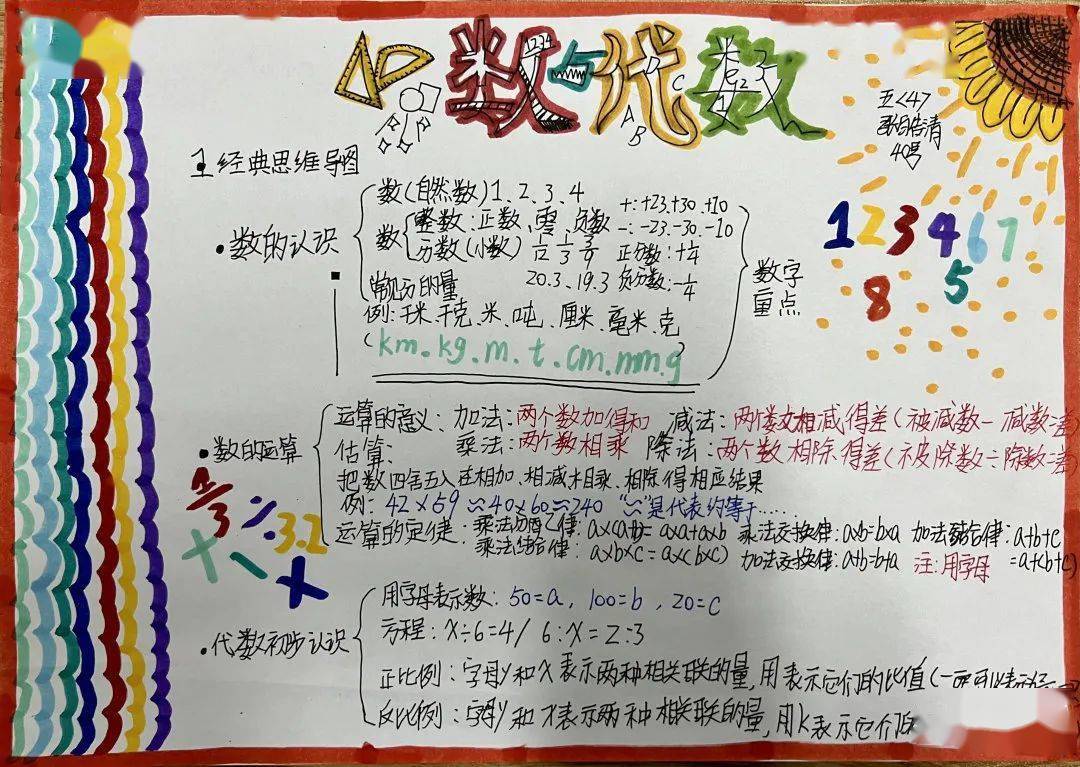 数与代数
1 2 3 4
A
B
C
五<4>
40号
1 经典思维导图
·数的认识
数(自然数)1、2、3、4
数
整数:正数、零、负数
+:+23.+30.+10
-:-23.-30.-10
分数(小数) 1/12 1/3 3/9
正分数:+1/4
20.3、19.3 负分数:-1/4
的量
例:千米、千克、米、吨、厘米、毫米、克
(km.kg.m.t.cm.mm.g)
数字
重点
1 2 3 4 6 7
8 5
·数的运算
运算的意义:加法:两个数加得和 减法:两个数相减得差(被减数-减数=差)
估算: 乘法:两个数相乘 除法:两个数相除得差(被除数÷除数=差)
把数四舍五入在相加、相减、相乘、相除得相应结果
例:42×59≈40×60≈240 "≈"是代表约等于……
运算的定律:乘法分配律:a×(a+b)=a×a+a×b 乘法交换律:a×b=b×a 加法结合律:a+b+c
乘法结合律:a×b×c=a×(b×c) 加法交换律:a+b=b+a 注:用字母 =a+(b+c)
1/3 ÷ 3.2
+ - ×
·代数初步认识
用字母表示数:50=a,100=b,20=c
方程:x÷6=4/ 6:x=2:3
正比例:字母y和x表示两种相关联的量,用表示它们的比值(一
反比例:字母y和x表示两种相关联的量,用k表示它们